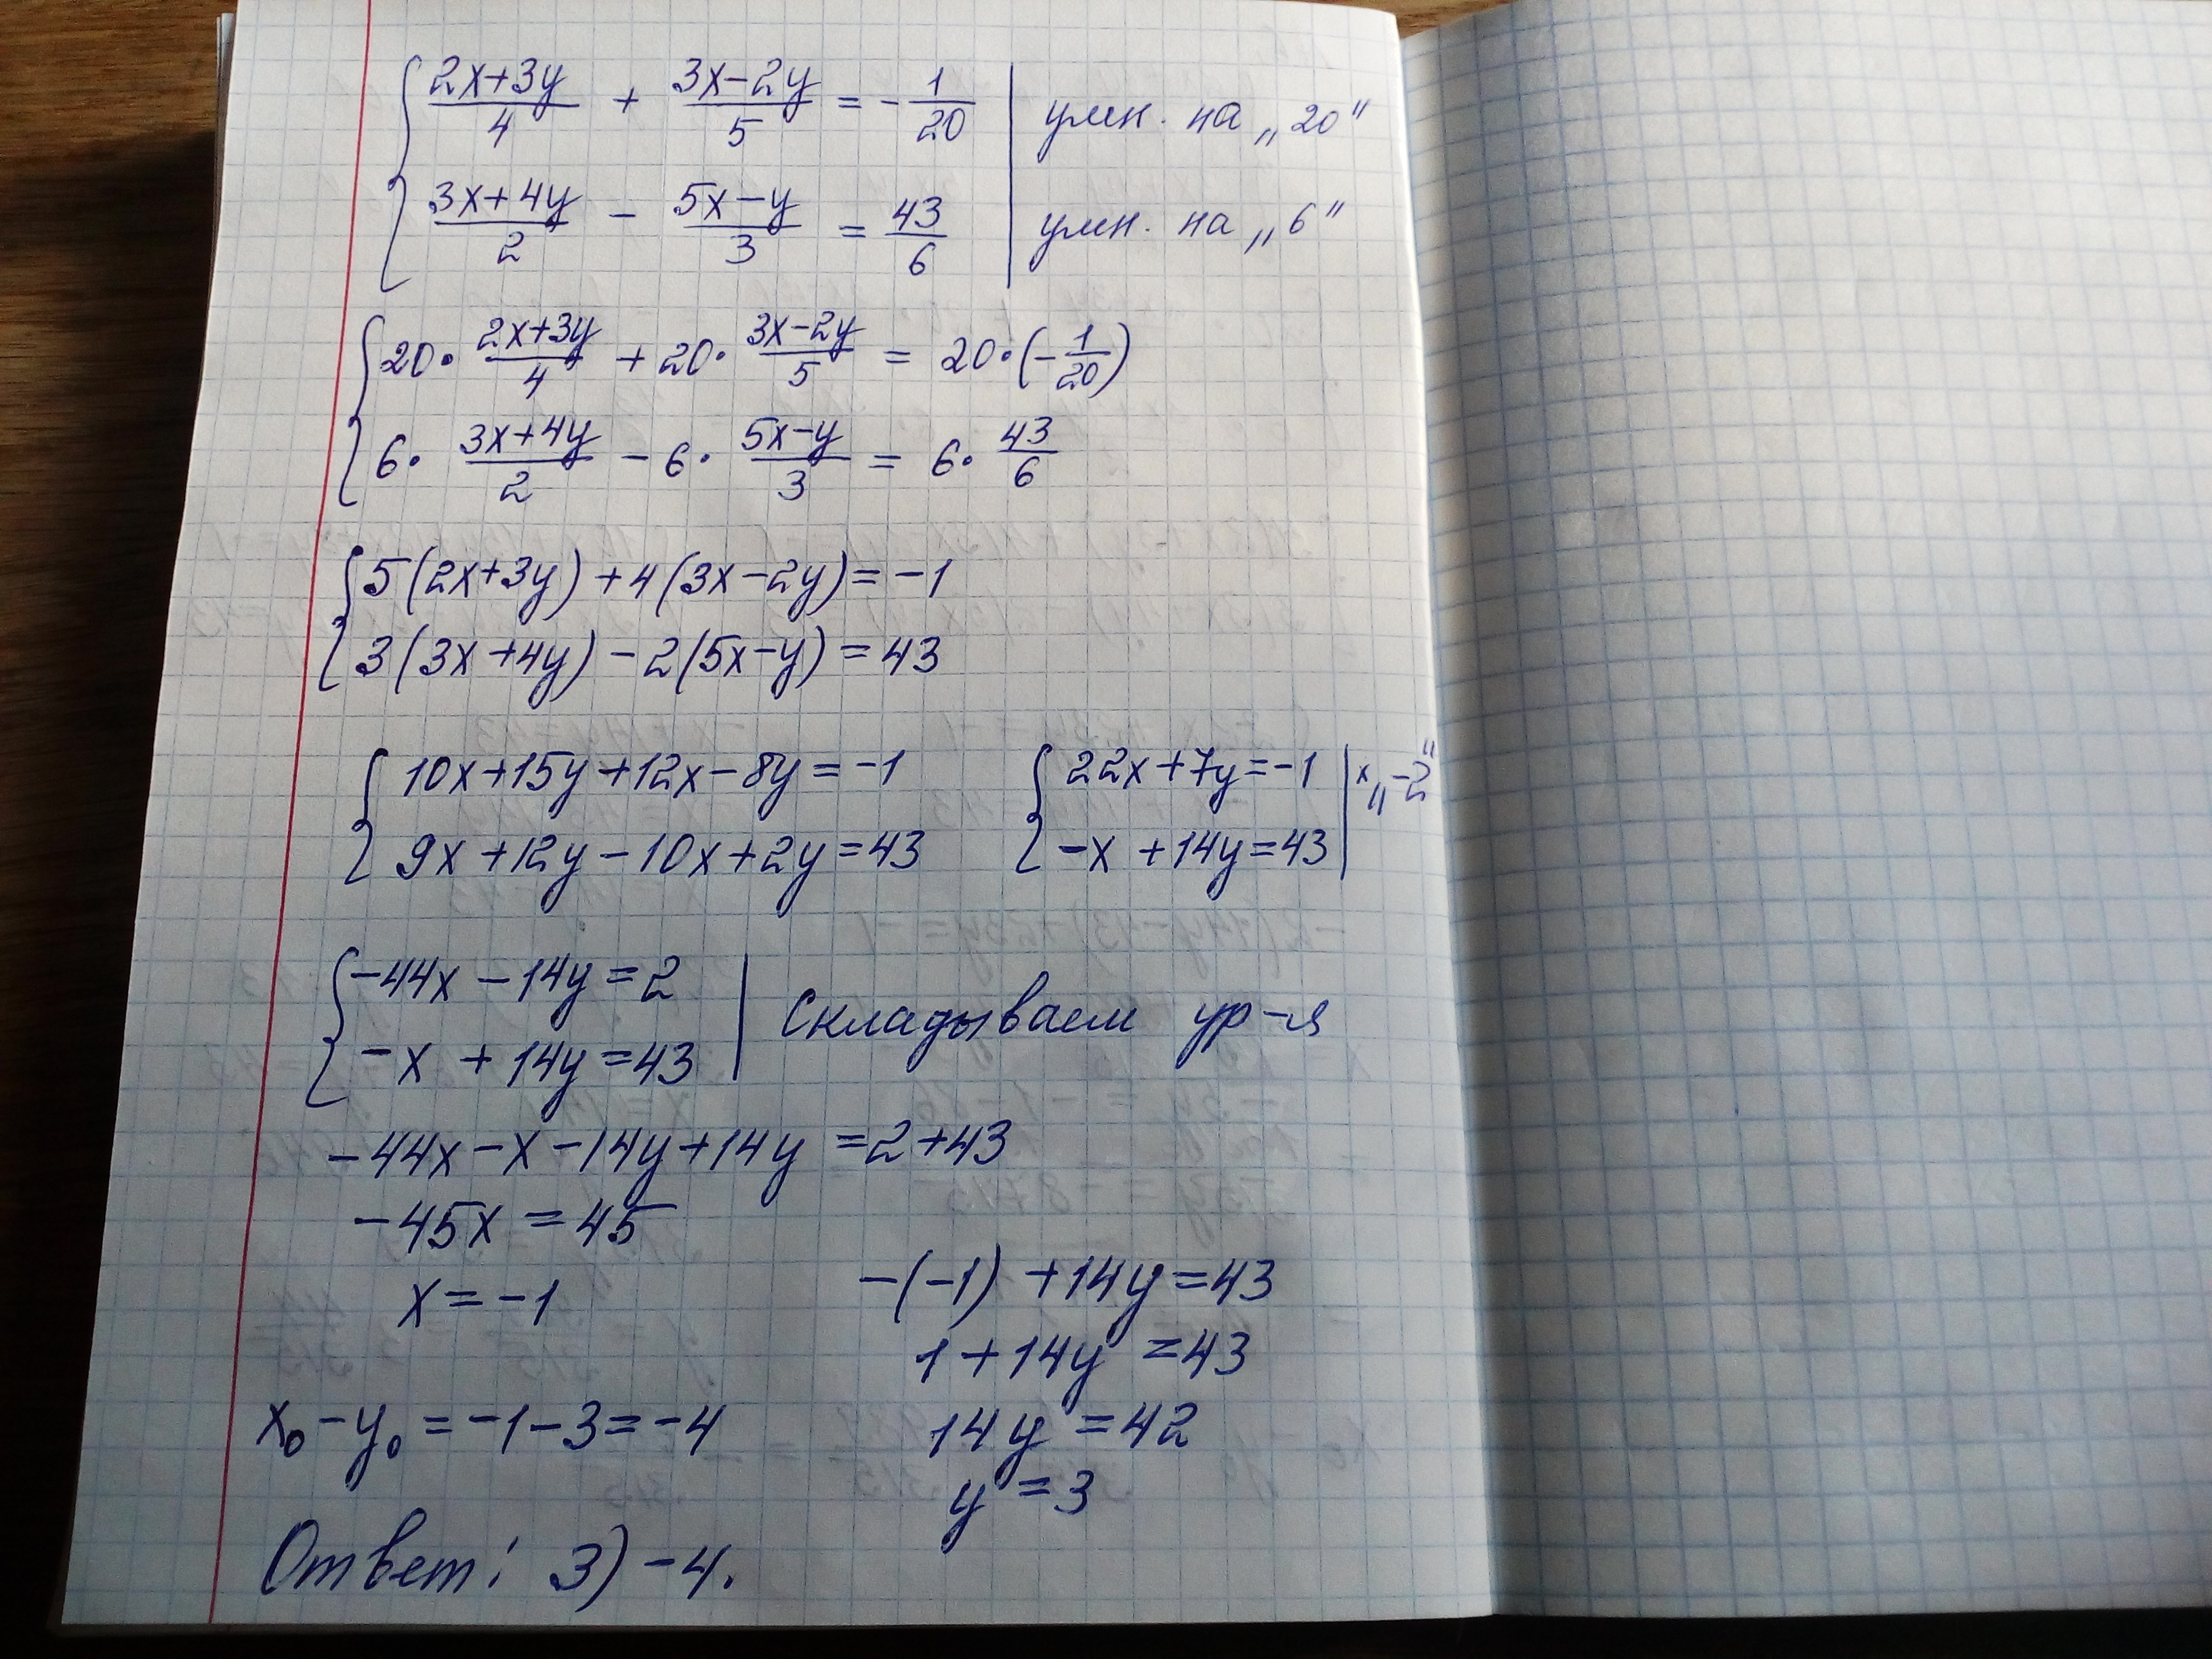 { (2x+3y)/4 + (3x-2y)/5 = -1/20 | умн. на „20"
(3x+4y)/2 - (5x-y)/3 = 43/6 | умн. на „6"
{ 20 · (2x+3y)/4 + 20 · (3x-2y)/5 = 20 · (-1/20)
6 · (3x+4y)/2 - 6 · (5x-y)/3 = 6 · 43/6
{ 5(2x+3y) + 4(3x-2y) = -1
3(3x+4y) - 2(5x-y) = 43
{ 10x+15y+12x-8y = -1
9x+12y-10x+2y = 43
{ 22x+7y = -1 | x „-2"
-x+14y = 43
{ -44x-14y = 2 | Складываем ур-я
-x+14y = 43
-44x-x-14y+14y = 2+43
-45x = 45
x = -1
-(-1)+14y = 43
1+14y = 43
14y = 42
y = 3
x₀-y₀ = -1-3 = -4
Ответ: 3) -4.